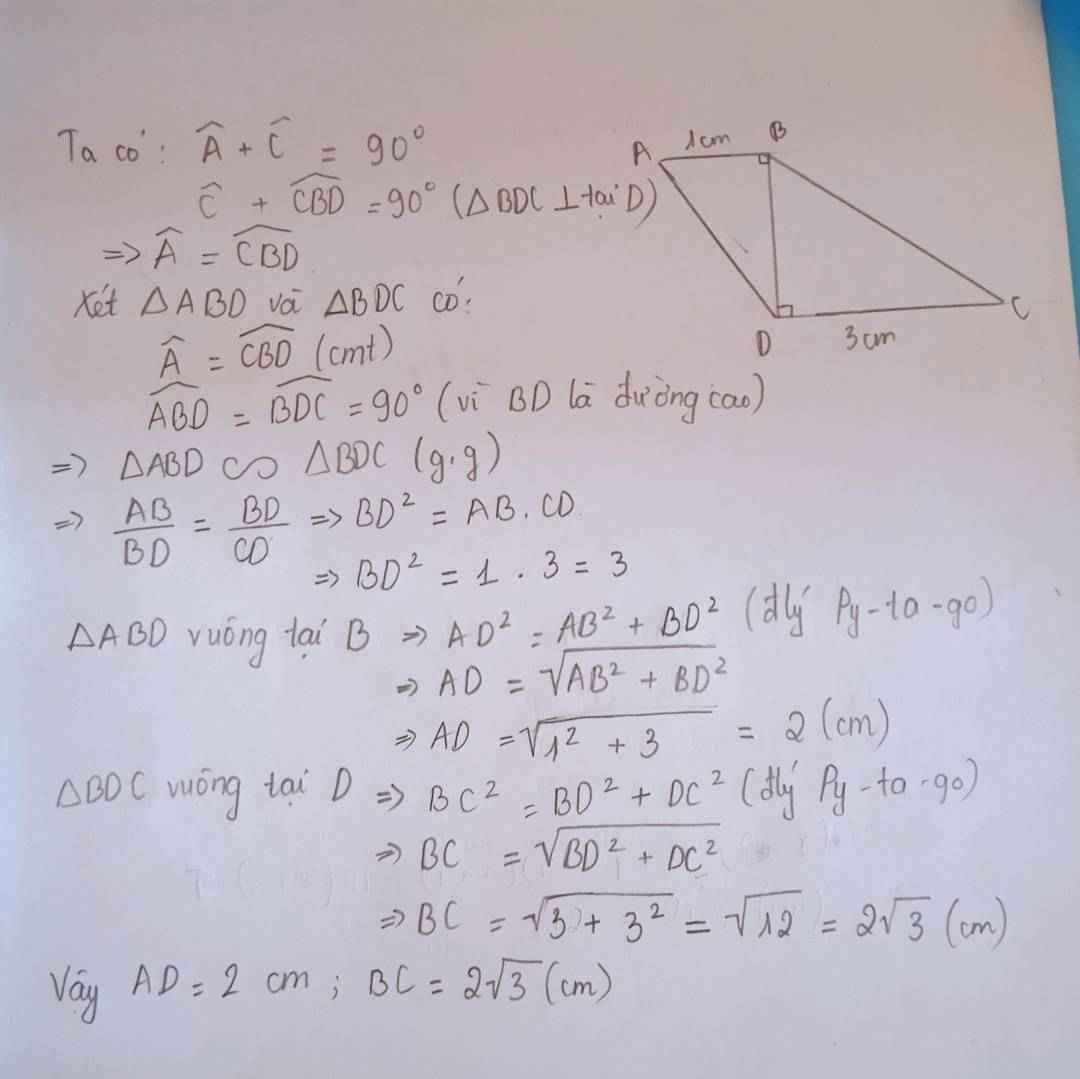 Ta có: Â + Ĉ = 90°
Ĉ + \widehat{CBD} = 90° (Δ BDC ⊥ tại D)
=> Â = \widehat{CBD}
Xét Δ ABD và ΔBDC có:
Â = \widehat{CBD} (cmt)
\widehat{ABD} = \widehat{BDC} = 90° (vì BD là đường cao)
=> ΔABD ∽ ΔBDC (g.g)
=> \frac{AB}{BD} = \frac{BD}{CD} => BD² = AB . CD
=> BD² = 1 . 3 = 3
ΔABD vuông tại B => AD² = AB² + BD² (đlý Py-ta-go)
=> AD = \sqrt{AB² + BD²}
=> AD = \sqrt{1² + 3} = 2 (cm)
ΔBDC vuông tại D => BC² = BD² + DC² (đlý Py-ta-go)
=> BC = \sqrt{BD² + DC²}
=> BC = \sqrt{3 + 3²} = \sqrt{12} = 2\sqrt{3} (cm)
Vậy AD = 2 cm ; BC = 2\sqrt{3} (cm)
A 1cm B
D 3cm C